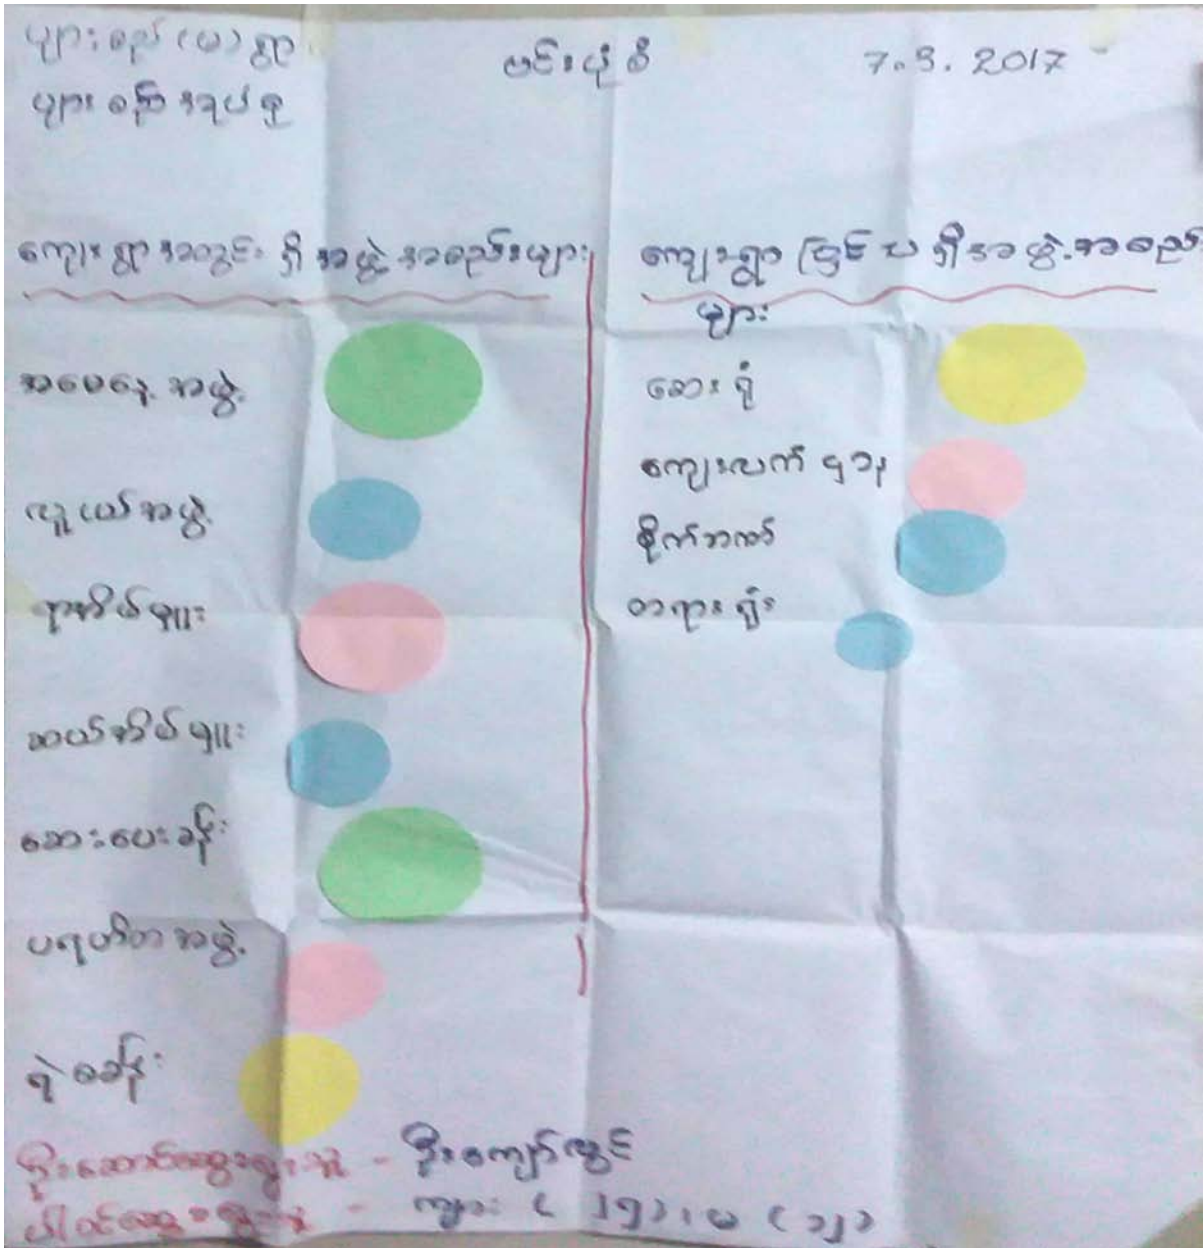 များစည် (မ) ရွာ
များစည် အုပ်စု
မင်းပုံစိ
7.3.2017
ကျေးရွာအတွင်းရှိ အဖွဲ့အစည်းများ
အမေနေ့ အဖွဲ့
လူငယ်အဖွဲ့
ရာအိမ်မှူး
ဆယ်အိမ်မှူး
ဆေးပေးခန်း
ပရဟိတအဖွဲ့
ရဲစခန်း
ကျေးရွာပြင်ပရှိအဖွဲ့အစည်း
များ
ဆေးရုံ
ကျေးလက်ဌာန
စိုက်ဘဏ်
တရားရုံး
ဦးဆောင်ဆွေးနွေးသူ - ဦးကျော်လွင်
ပါဝင်ဆွေးနွေးသူ - ကျား ( ၂၅ ) ၊ မ ( ၁၂ )